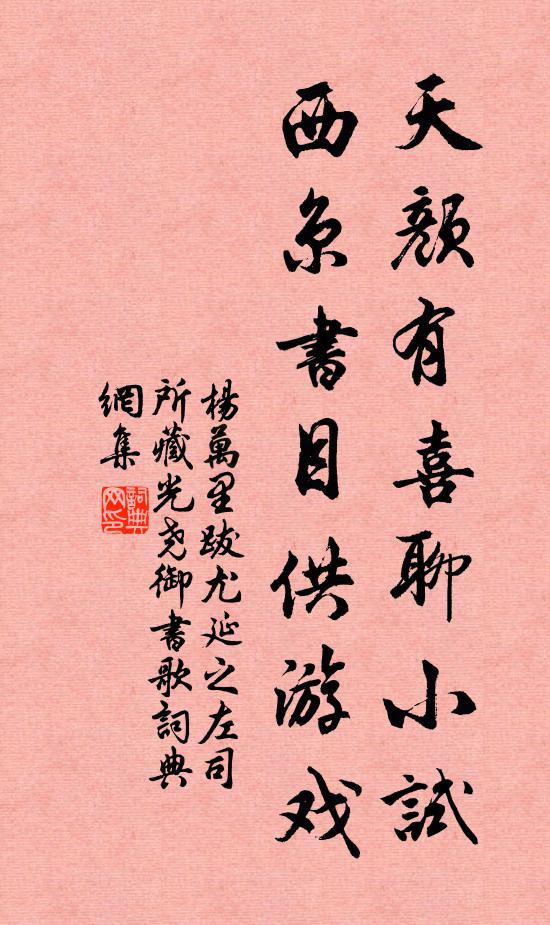 天顏有喜聊小試
西京書目供游戏
楊萬里跋尤延之左司
所藏光尧御書歌詞典
網集
詞典
网印